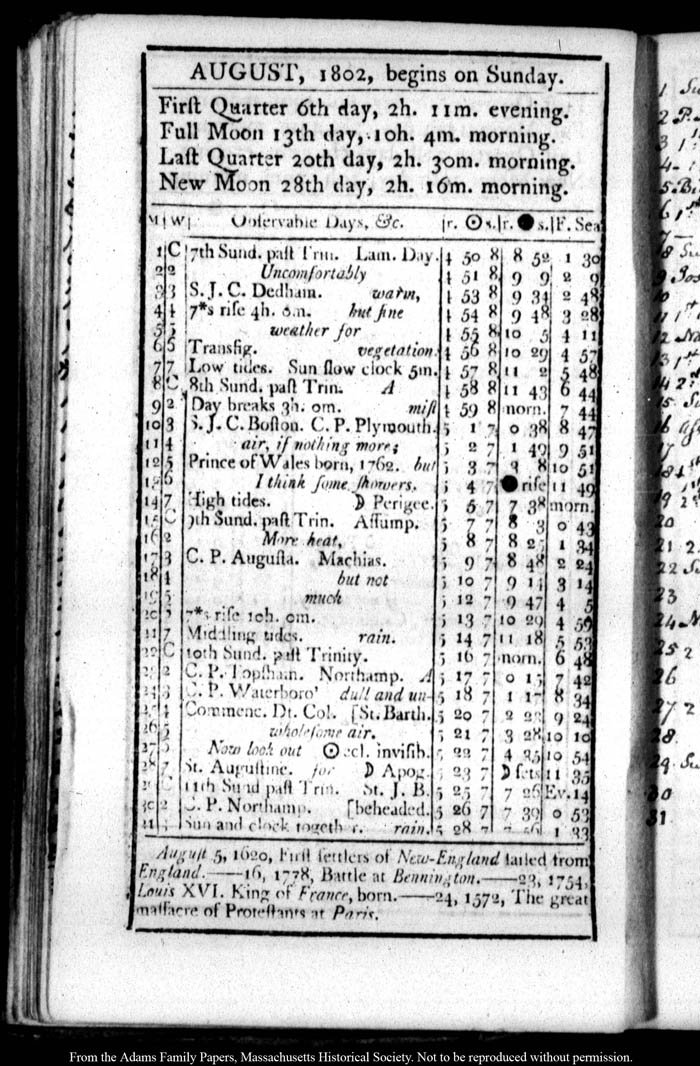 AUGUST, 1802, begins on Sunday.
Firſt Quarter 6th day, 2h. 11m. evening.
Full Moon 13th day, 10h. 4m. morning.
Laſt Quarter 20th day, 2h. 30m. morning.
New Moon 28th day, 2h. 16m. morning.
M|W| Obſervable Days, &c. |r. ☉ s.|r. ● s.|F. Sea
1 C 7th Sund. paſt Trin. Lam. Day. 4 50 8 8 52 1 30
2 2 Uncomfortably 4 51 8 9 9 2 9
3 3 S. J. C. Dedham. warm, 4 53 8 9 34 2 48
4 4 7*s riſe 4h. 0m. but fine 4 54 8 9 48 3 28
5 5 weather for 4 55 8 10 5 4 11
6 6 Transfig. vegetation. 4 56 8 10 29 4 57
7 7 Low tides. Sun ſlow clock 5m. 4 57 8 11 2 5 48
8 C 8th Sund. paſt Trin. A 4 58 8 11 43 6 44
9 2 Day breaks 3h. 0m. miſt 4 59 8 morn. 7 44
10 3 S. J. C. Boſton. C. P. Plymouth. 5 1 7 0 38 8 47
11 4 air, if nothing more; 5 2 7 1 49 9 51
12 5 Prince of Wales born, 1762. but 5 3 7 3 8 10 51
13 6 I think ſome ſhowers. 5 4 7 ● riſe 11 49
14 7 High tides. ☽ Perigee. 5 5 7 7 38 morn.
15 C 9th Sund. paſt Trin. Aſſump. 5 7 7 8 3 0 43
16 2 More heat, 5 8 7 8 25 1 34
17 3 C. P. Auguſta. Machias. 5 9 7 8 48 2 24
18 4 but not 5 10 7 9 14 3 14
19 5 much 5 12 7 9 47 4 5
20 6 7*s riſe 10h. 0m. 5 13 7 10 29 4 59
21 7 Middling tides. rain. 5 14 7 11 18 5 53
22 C 10th Sund. paſt Trinity. 5 16 7 morn. 6 48
23 2 C. P. Topſham. Northamp. A 5 17 7 0 15 7 42
24 3 C. P. Waterboro' dull and un- 5 18 7 1 17 8 34
25 4 Commenc. Dt. Col. [St. Barth. 5 20 7 2 23 9 24
26 5 wholeſome air. 5 21 7 3 28 10 10
27 6 Now look out ☉ ecl. inviſib. 5 22 7 4 35 10 54
28 7 St. Auguſtine. for ☽ Apog. 5 23 7 ☽ ſets 11 35
29 C 11th Sund paſt Trin. St. J. B. 5 25 7 7 26 Ev. 14
30 2 C. P. Northamp. [beheaded. 5 26 7 7 39 0 53
31 3 Sun and clock together. rain. 5 28 7 7 56 1 33
Auguſt 5, 1620, Firſt ſettlers of New-England ſailed from
England.——16, 1778, Battle at Bennington.——23, 1754,
Louis XVI. King of France, born.——24, 1572, The great
maſſacre of Proteſtants at Paris.
1
2
3
4
5
6
7
8
9
10
11
12
13
14
15
16
17
18
19
20
21
22
23
24
25
26
27
28.
29.
30
31
From the Adams Family Papers, Massachusetts Historical Society. Not to be reproduced without permission.